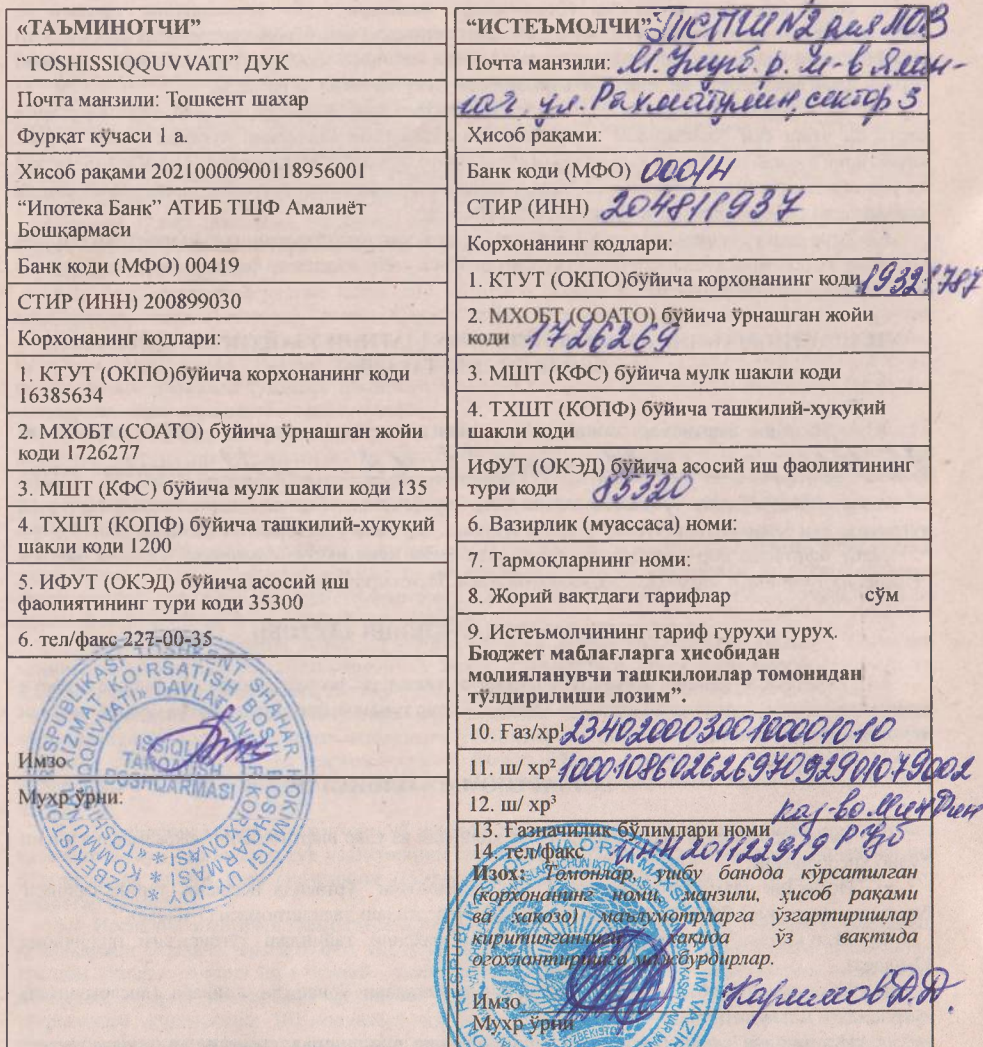 «ТАЪМИНОТЧИ"
"TOSHISSIQQUVVATI" ДУК
Почта манзили: Тошкент шахар
Фурқат кўчаси 1 а.
Хисоб рақами 20210000900118956001
"Ипотека Банк" АТИБ ТШФ Амалиёт
Бошқармаси
Банк коди (МФО) 00419
СТИР (ИНН) 200899030
Корхонанинг кодлари:
1. КТУТ (ОКПО)бўйича корхонанинг коди
16385634
2. МХОБТ (СОАТО) бўйича ўрнашган жойи
коди 1726277
3. МШТ (КФС) бўйича мулк шакли коди 135
4. ТХШТ (КОПФ) бўйича ташкилий-хуқуқий
шакли коди 1200
5. ИФУТ (ОКЭД) бўйича асосий иш
фаолиятининг тури коди 35300
6. тел/факс 227-00-35
Имзо
Мухр ўрни:
ISSIQLIK
TARQATISH
BOSHQARMASI
"ИСТЕЪМОЛЧИ":
Почта манзили: М. Улугб. р. м-в Ялан-
гач, ул. Рахматулин, сектор 3
Ҳисоб рақами:
Банк коди (МФО) 00014
СТИР (ИНН) 204811937
Корхонанинг кодлари:
1. КТУТ (ОКПО)бўйича корхонанинг коди 19321787
2. МХОБТ (СОАТО) бўйича ўрнашган жойи
коди 1726269
3. МШТ (КФС) бўйича мулк шакли коди
4. ТХШТ (КОПФ) бўйича ташкилий-хуқуқий
шакли коди
ИФУТ (ОКЭД) бўйича асосий иш фаолиятининг
тури коди 85320
6. Вазирлик (муассаса) номи:
7. Тармоқларнинг номи:
8. Жорий вақтдаги тарифлар сўм
9. Истеъмолчининг тариф гуруҳи гуруҳ.
Бюджет маблағларга хисобидан
молияланувчи ташкилоилар томонидан
тўлдирилиши лозим".
10. Ғаз/хр¹ 23402000300100001010
11. ш/ хр² 100010860262697092901079002
12. ш/ хр³
каз-во. МинФин
13. Ғазначилик бўлимлари номи
14. тел/факс ИНН 201122919 РУб
Изох: Томонлар, ушбу бандда кўрсатилган
(корхонанинг номи, манзили, ҳисоб рақами
ва хакозо) маълумотрларга ўзгартиришлар
киритилганлиги хақида ўз вақтида
огохлантиришга мажбурдирлар.
Имзо Каримов Д.Д.
Мухр ўрни